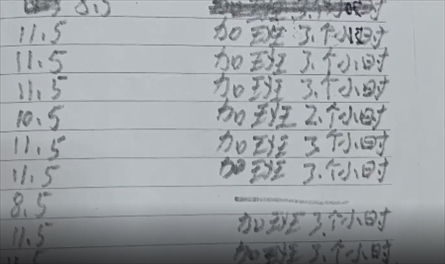 8.5 3.个小时
11.5 加班 3.个小时
11.5 加班 3.个小时
11.5 加班 3.个小时
10.5 加班 2.个小时
11.5 加班 3.个小时
11.5 加班 3.个小时
8.5
11.5 加班 3.个小时
11.5 加班 3.个小时